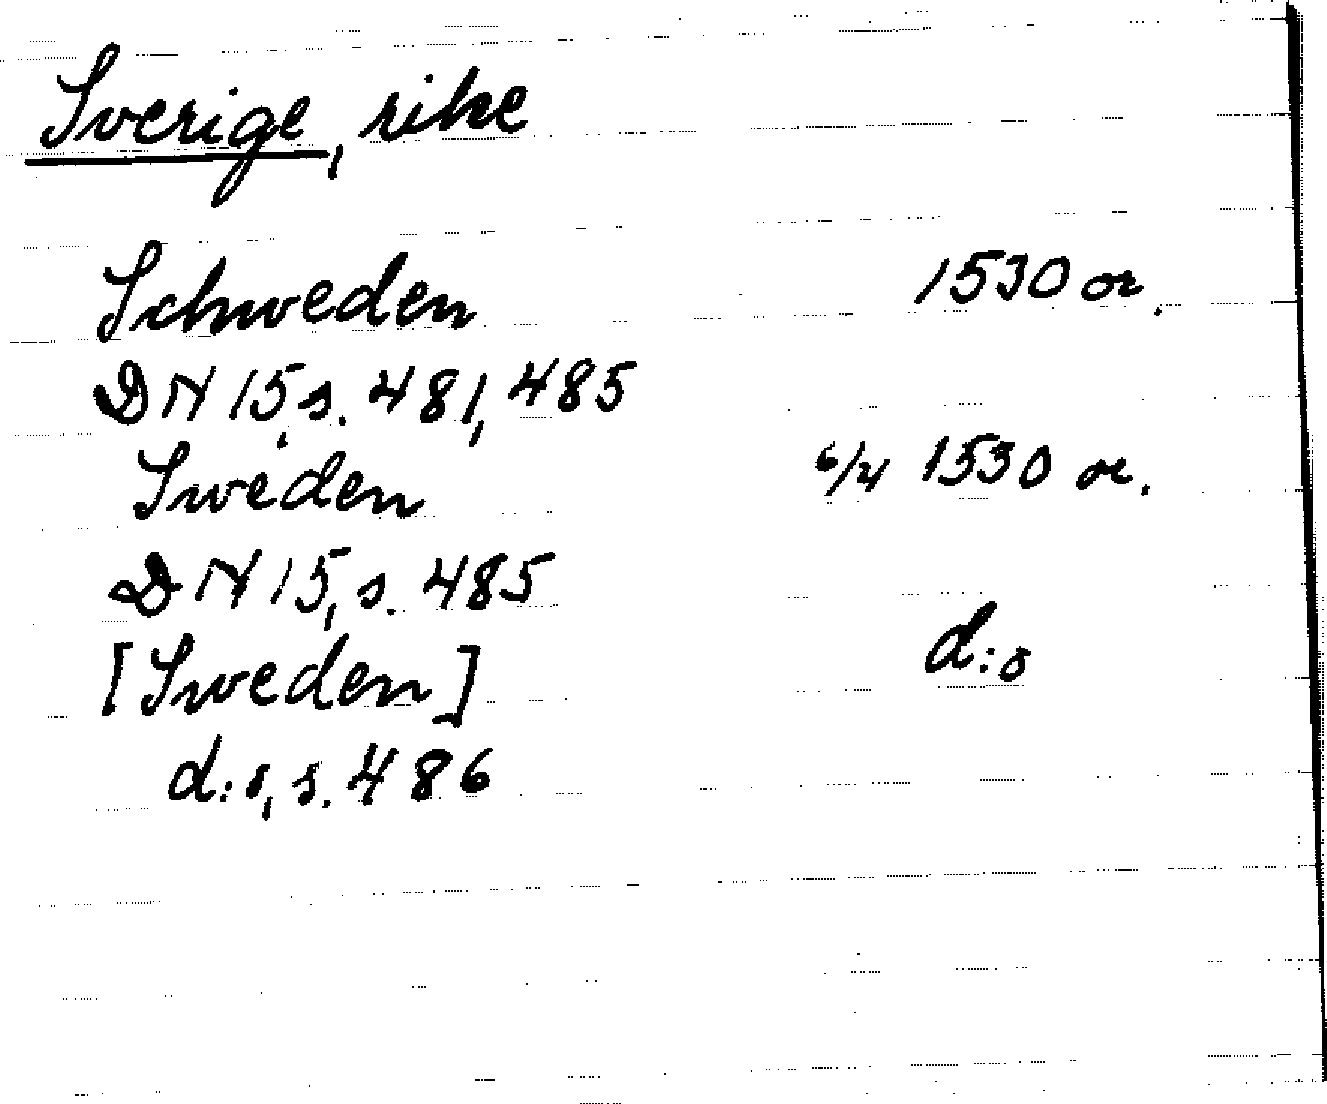 Sverige, rike
Schweden 1530 or.
DN 15, s. 481, 485
Sweden 6/4 1530 or.
DN 15, s. 485
[Sweden] d:o
d:o, s. 486